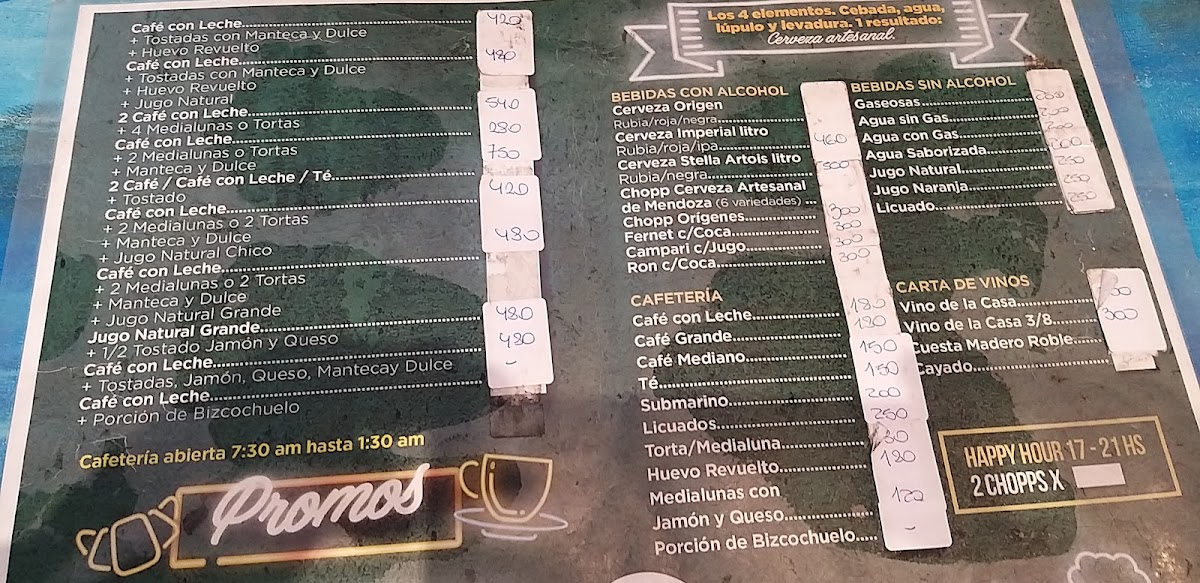 Café con Leche 420
+ Tostadas con Manteca y Dulce
+ Huevo Revuelto
Café con Leche 480
+ Tostadas con Manteca y Dulce
+ Huevo Revuelto
+ Jugo Natural
2 Café con Leche 540
+ 4 Medialunas o Tortas
Café con Leche 280
+ 2 Medialunas o Tortas
+ Manteca y Dulce
2 Café / Café con Leche / Té 750
+ Tostado
Café con Leche 420
+ 2 Medialunas o 2 Tortas
+ Manteca y Dulce
+ Jugo Natural Chico
Café con Leche 480
+ 2 Medialunas o 2 Tortas
+ Manteca y Dulce
+ Jugo Natural Grande
Jugo Natural Grande 480
+ 1/2 Tostado Jamón y Queso
Café con Leche 420
+ Tostadas, Jamón, Queso, Mantecay Dulce
Café con Leche -
+ Porción de Bizcochuelo
Cafetería abierta 7:30 am hasta 1:30 am
Promos
Los 4 elementos. Cebada, agua,
lúpulo y levadura. 1 resultado:
Cerveza artesanal.
BEBIDAS CON ALCOHOL
Cerveza Origen
Rubia/roja/negra
Cerveza Imperial litro
Rubia/roja/ipa 460
Cerveza Stella Artois litro
Rubia/negra 500
Chopp Cerveza Artesanal
de Mendoza (6 variedades) 300
Chopp Orígenes 300
Fernet c/Coca 300
Campari c/Jugo 300
Ron c/Coca
CAFETERÍA
Café con Leche 180
Café Grande 180
Café Mediano 150
Té 150
Submarino 200
Licuados 250
Torta/Medialuna
Huevo Revuelto 180
Medialunas con
Jamón y Queso 120
Porción de Bizcochuelo -
BEBIDAS SIN ALCOHOL
Gaseosas 200
Agua sin Gas 200
Agua con Gas 200
Agua Saborizada 200
Jugo Natural 250
Jugo Naranja 250
Licuado 250
CARTA DE VINOS
Vino de la Casa
Vino de la Casa 3/8 300
Cuesta Madero Roble
Cayado
HAPPY HOUR 17 - 21 HS
2 CHOPPS X